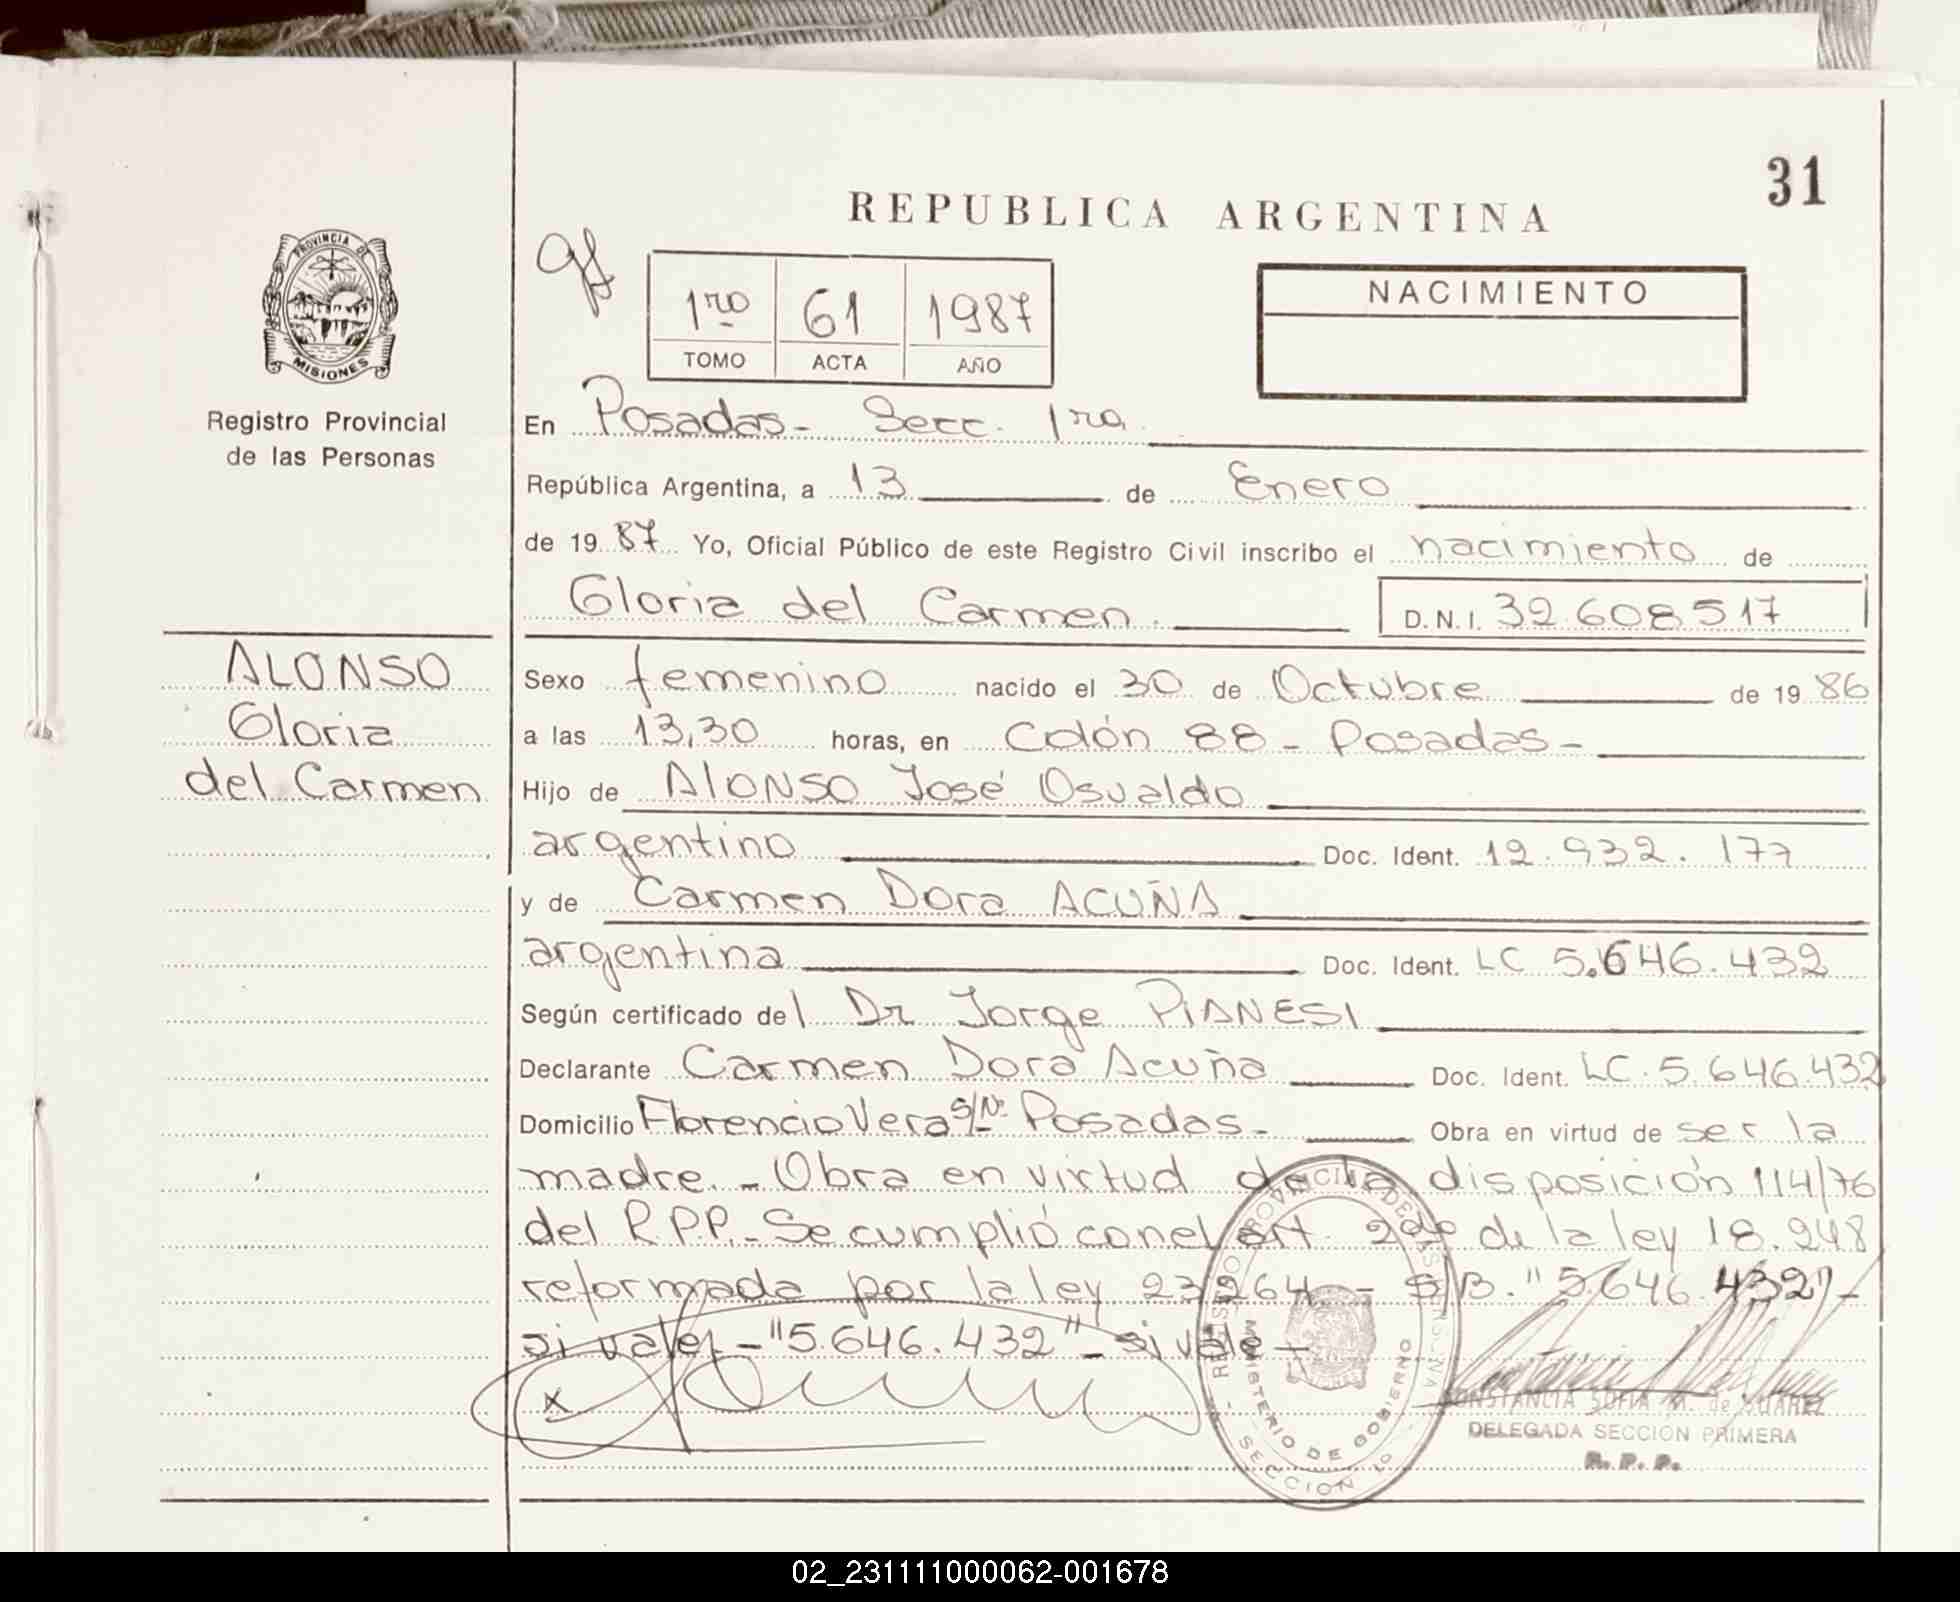 31
REPUBLICA ARGENTINA
PROVINCIA DE
MISIONES
Registro Provincial
de las Personas
1ro 61 1987
TOMO ACTA AÑO
NACIMIENTO
En Posadas - Secc. 1ra.
República Argentina, a 13 de Enero
de 1987 Yo, Oficial Público de este Registro Civil inscribo el nacimiento de
Gloria del Carmen. D.N.I. 32.608.517
ALONSO
Gloria
del Carmen
Sexo femenino nacido el 30 de Octubre de 1986
a las 13,30 horas, en Colón 88 - Posadas -
Hijo de Alonso José Osvaldo
argentino Doc. Ident. 12.932.177
y de Carmen Dora ACUÑA
argentina Doc. Ident. LC 5.646.432
Según certificado del Dr Jorge PiANESI
Declarante Carmen Dora Acuña Doc. Ident. LC. 5.646.432
Domicilio Florencio Vera S/Nº Posadas - Obra en virtud de ser la
madre. - Obra en virtud de la disposición 114/76
del R.P.P. - Se cumplió con el art. 2do de la ley 18.248
reformada por la ley 23264 - S/B. "5.646.432" -
si vale - "5.646.432" - si vale -
x
REGISTRO PROVINCIAL DE LAS PERSONAS
MINISTERIO DE GOBIERNO
SECCION 1º
CONSTANCIA SOFIA M. de SUAREZ
DELEGADA SECCION PRIMERA
R. P. P.
02_231111000062-001678